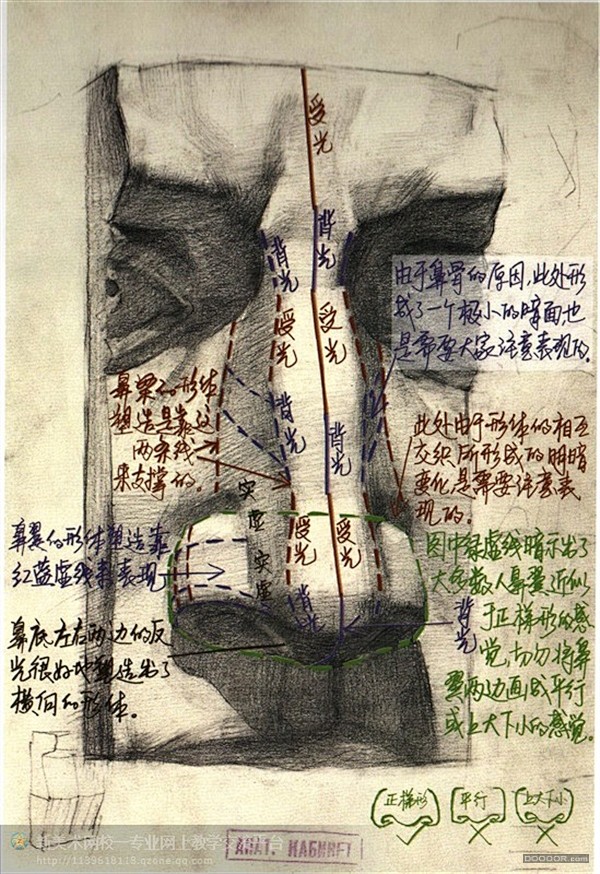 受光
背光
背光
受光
受光
背光
背光
实
虚
实
虚
受光
受光
背光
背光
由于鼻骨的原因,此处形
成了一个极小的暗面,也
是需要大家注意表现的。
鼻梁的形体
塑造是靠这
两条线
来支撑的。
此处由于形体的相互
交织所形成的明暗
变化是需要注意表
现的。
鼻翼的形体塑造靠
红蓝虚线来表现
图中绿虚线暗示出了
大多数人鼻翼近似
于正梯形的感
觉,切勿将鼻
翼两边画成平行
或上大下小的感觉。
鼻底左右两边的反
光很好地塑造出了
横向的形体。
正梯形
平行
上大下小
美术网校一专业网上教学
台
http://1139618118.qzone.qq.com
АНАТ. КАБИНЕТ
DOOOOR.com